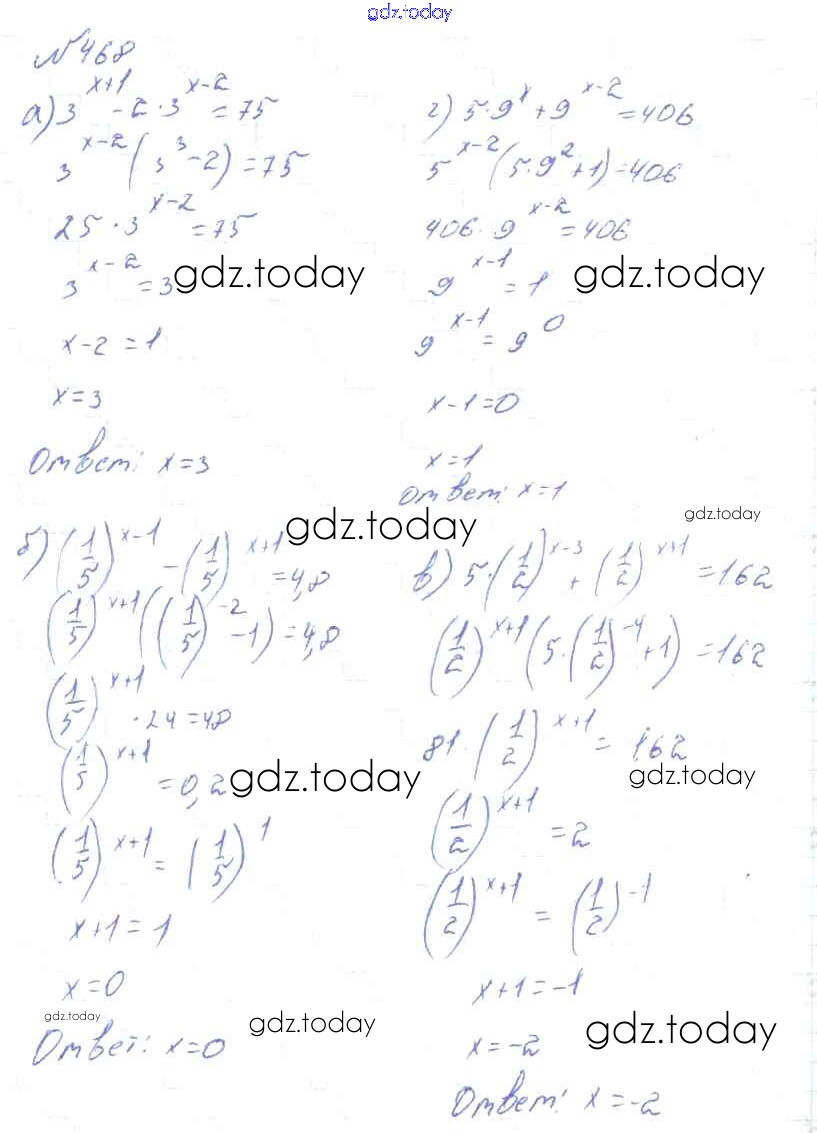 gdz.today
№468
а) 3^(x+1) - 2·3^(x-2) = 75
3^(x-2) (3^3 - 2) = 75
25·3^(x-2) = 75
3^(x-2) = 3
gdz.today
x-2 = 1
x = 3
Ответ: x = 3
г) 5·9^x + 9^(x-2) = 406
5^(x-2) (5·9^2 + 1) = 406
406·9^(x-2) = 406
9^(x-1) = 1
gdz.today
9^(x-1) = 9^0
x-1 = 0
x = 1
Ответ: x = 1
gdz.today
gdz.today
б) (1/5)^(x-1) - (1/5)^(x+1) = 4,8
(1/5)^(x+1) ((1/5)^(-2) - 1) = 4,8
(1/5)^(x+1) ·24 = 48
(1/5)^(x+1) = 0,2
gdz.today
(1/5)^(x+1) = (1/5)^1
x+1 = 1
x = 0
gdz.today
Ответ: x = 0
gdz.today
в) 5·(1/2)^(x-3) + (1/2)^(x+1) = 162
(1/2)^(x+1) (5·(1/2)^(-4) + 1) = 162
81·(1/2)^(x+1) = 162
gdz.today
(1/2)^(x+1) = 2
(1/2)^(x+1) = (1/2)^(-1)
x+1 = -1
x = -2
gdz.today
Ответ: x = -2